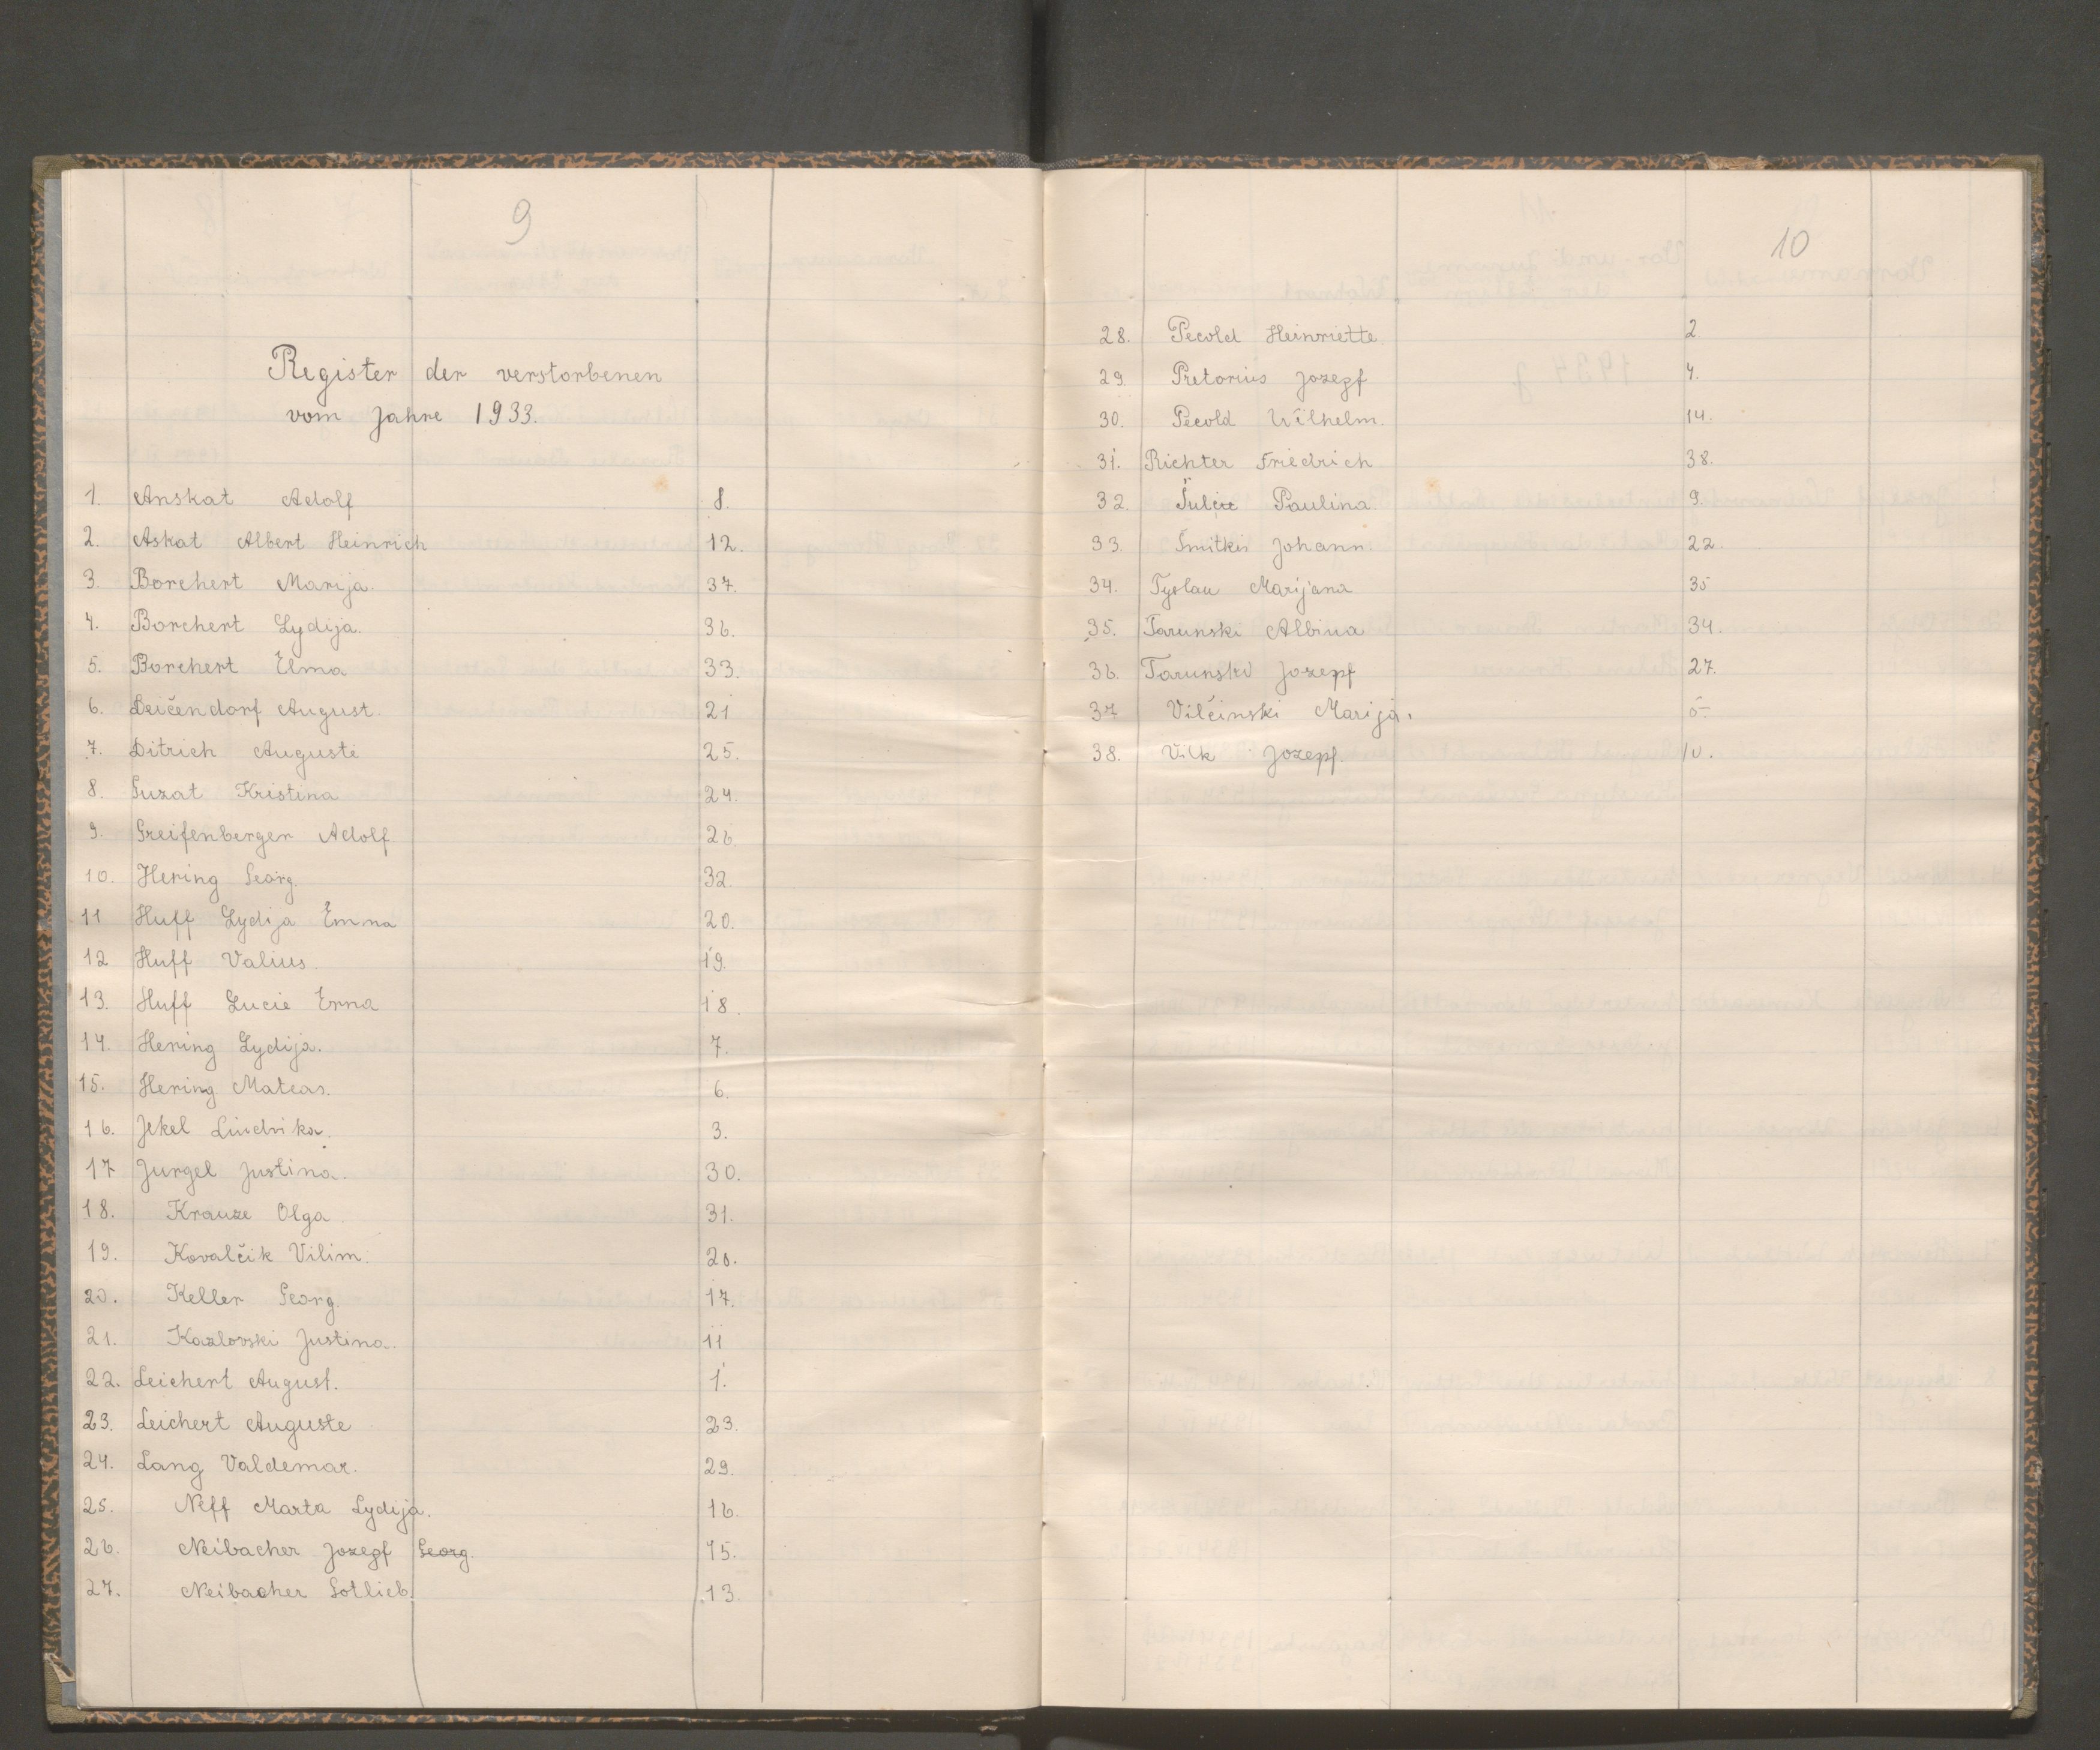 9
Register der verstorbenen
vom Jahre 1933.
1. Anskat Adolf 8.
2. Askat Albert Heinrich 12.
3. Borchert Marija. 37.
4. Borchert Lydija. 36.
5. Borchert Elma 33.
6. Deičendorf August. 21
7. Ditrich Auguste 25.
8. Guzat Kristina 24.
9. Greifenberger Adolf. 26.
10. Hering Georg. 32.
11 Huff Lydija Emna 20.
12 Huff Valius. 19.
13. Huff Lucie Erna 18.
14. Hering Lydija. 7.
15. Hering Mateas. 6.
16. Jekel 3.
17 Jurgel Justina. 30.
18. Krauze Olga 31.
19. Kovalčik Vilim. 20.
20. Keller Georg. 17.
21. Kazlovski Justina. 11
22. Leichert August. 1.
23. Leichert Auguste 23.
24. Lang Valdemar. 29.
25. Neff Marta Lydija. 16.
26. Neibacher Jozepf Georg. 15.
27. Neibacher Gotlieb. 13.
10
28. Pecold Heinriette. 2
29. Pretorius Jozepf 4.
30. Pecold Wilhelm. 14.
31. Richter Friedrich 38.
32. Paulina. 9.
33. Šmitkis Johann. 22.
34. Tyslau Marijana 35
35. Tarunski Albina 34.
36. Tarunski Jozepf 27.
37 Vilčinski Marija. 5
38. Vilk Jozepf. 10.